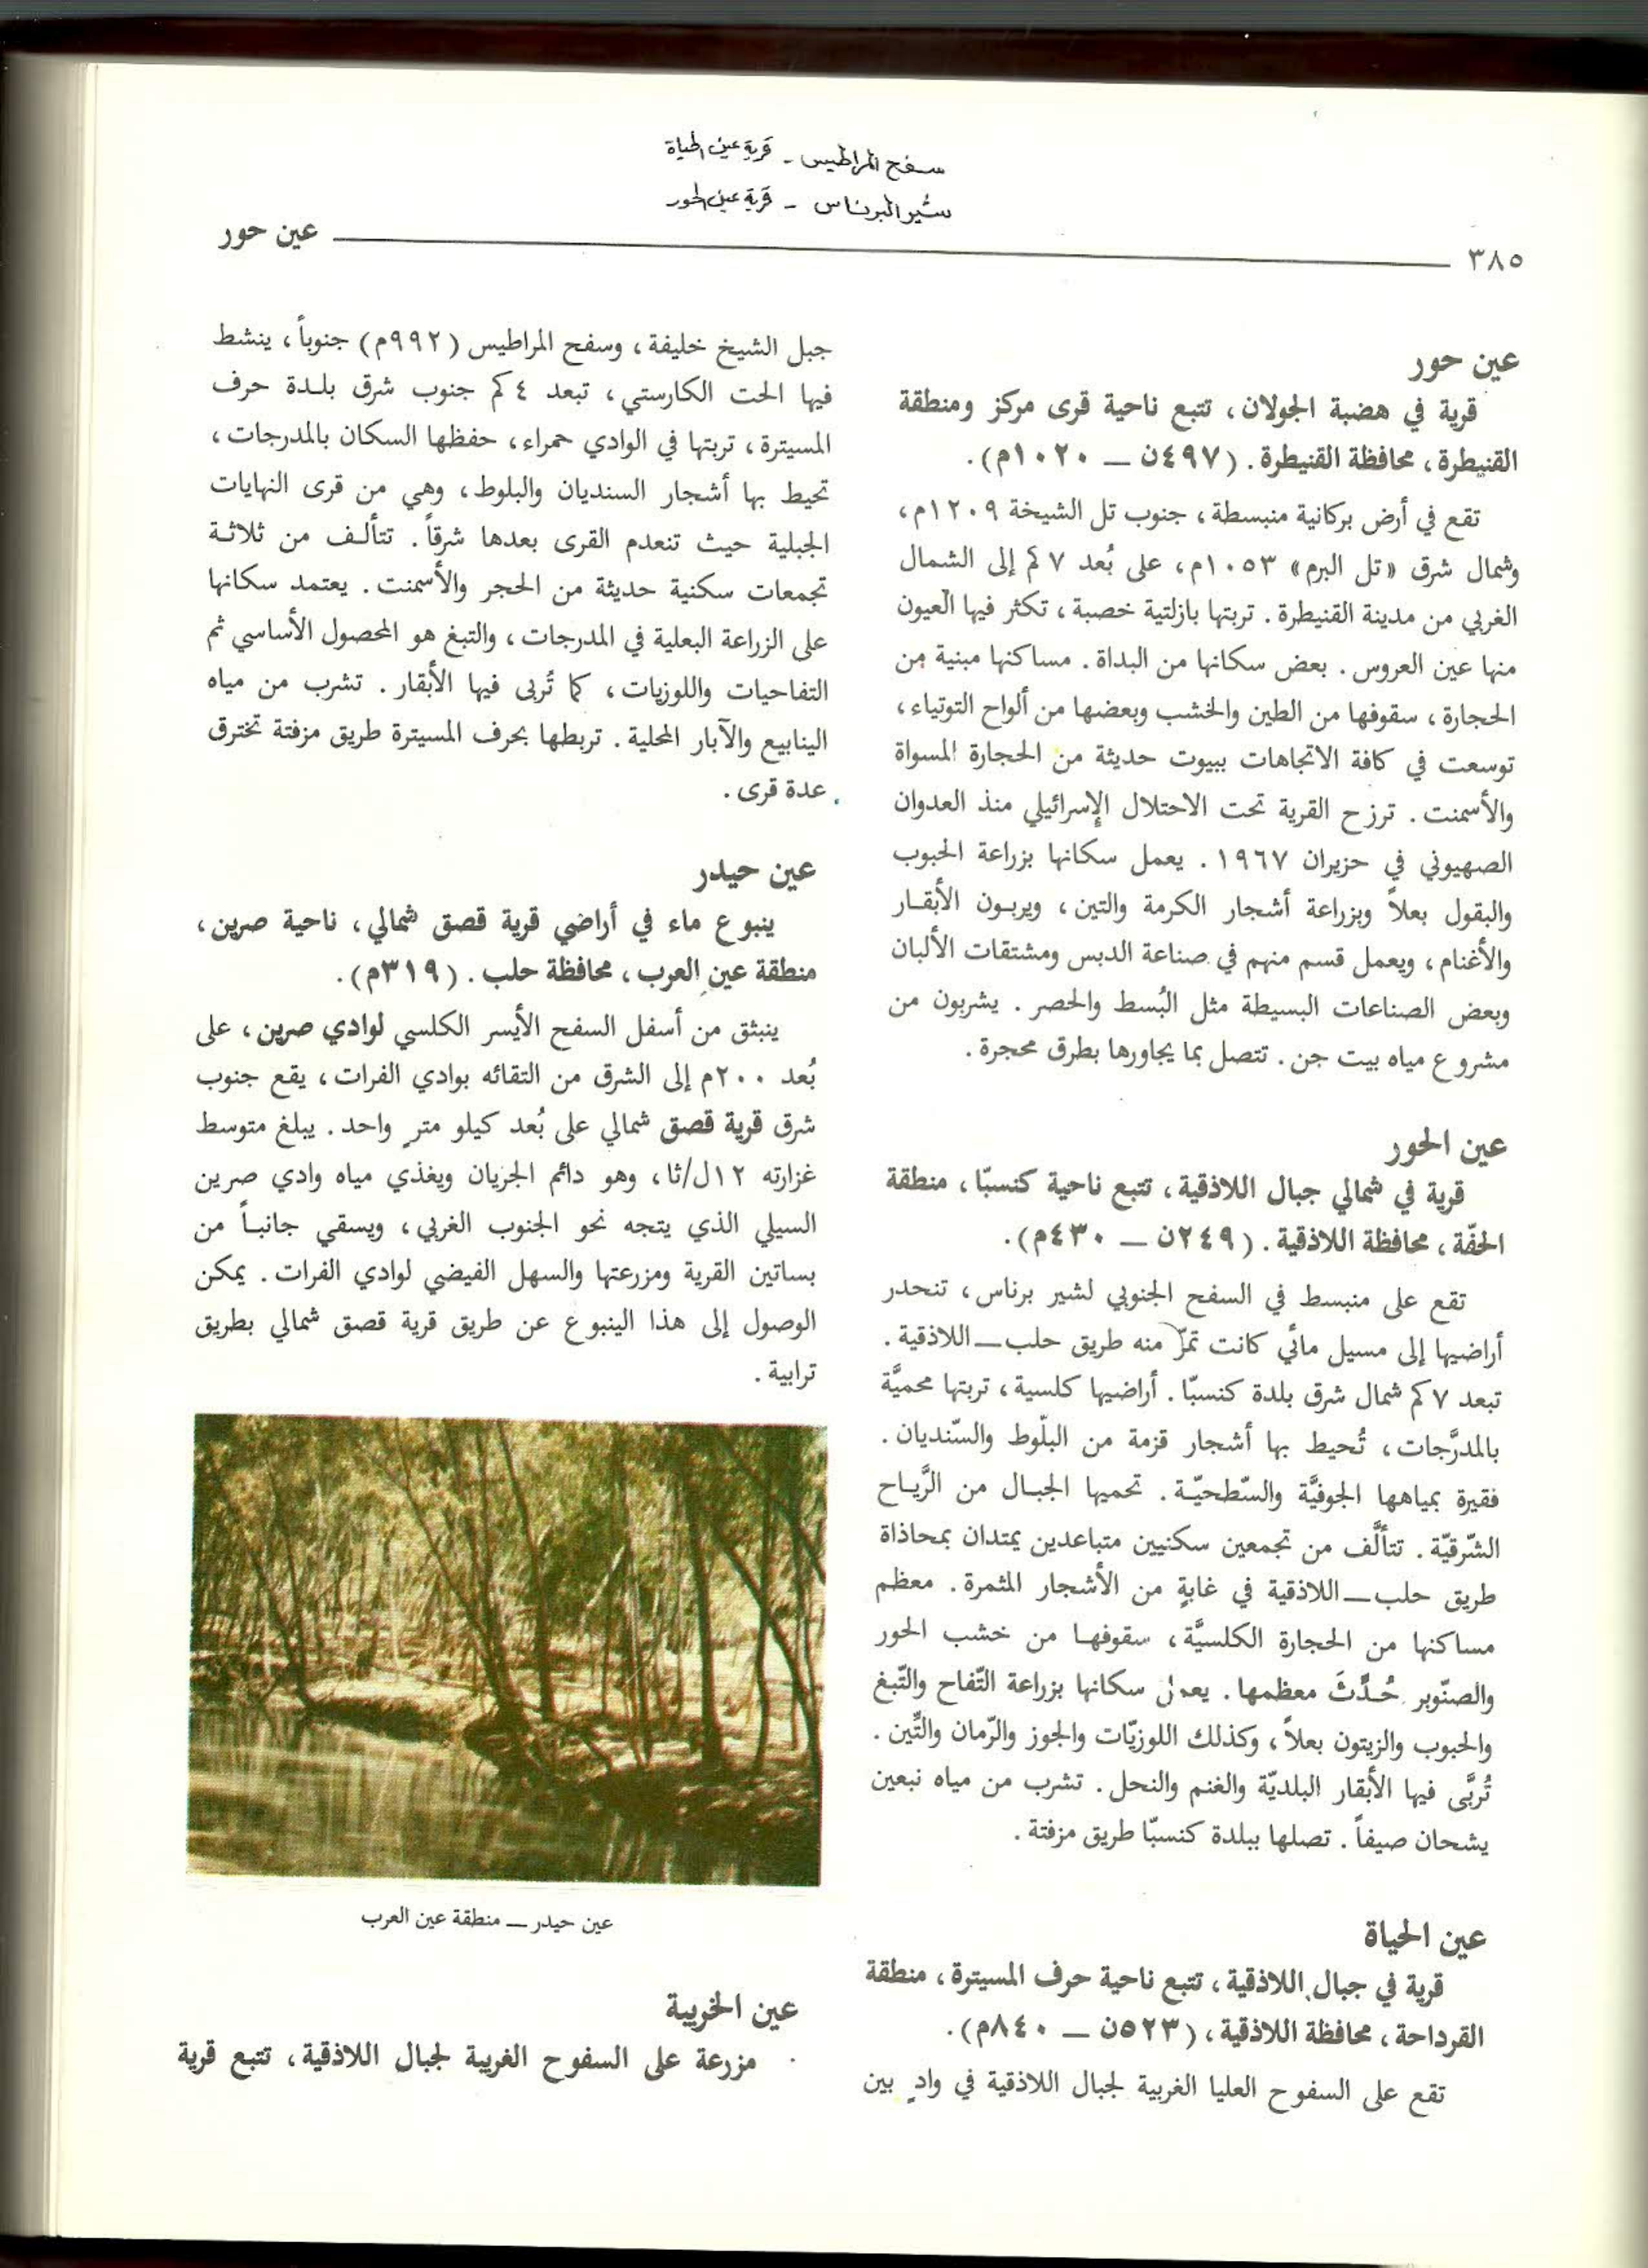 سفح المراطيس - قرية عين الحياة
شير البرناس - قرية عين الحور
٣٨٥ عين حور
عين حور
قرية في هضبة الجولان، تتبع ناحية قرى مركز ومنطقة
القنيطرة، محافظة القنيطرة. (٤٩٧ن — ١٠٢٠م).
تقع في أرض بركانية منبسطة، جنوب تل الشيخة ١٢٠٩م،
وشمال شرق «تل البرم» ١٠٥٣م، على بُعد ٧ كم إلى الشمال
الغربي من مدينة القنيطرة. تربتها بازلتية خصبة، تكثر فيها العيون
منها عين العروس. بعض سكانها من البداة. مساكنها مبنية من
الحجارة، سقوفها من الطين والخشب وبعضها من ألواح التوتياء،
توسعت في كافة الاتجاهات ببيوت حديثة من الحجارة المسواة
والأسمنت. ترزح القرية تحت الاحتلال الإسرائيلي منذ العدوان
الصهيوني في حزيران ١٩٦٧. يعمل سكانها بزراعة الحبوب
والبقول بعلاً وبزراعة أشجار الكرمة والتين، ويربون الأبقار
والأغنام، ويعمل قسم منهم في صناعة الدبس ومشتقات الألبان
وبعض الصناعات البسيطة مثل البُسط والحصر. يشربون من
مشروع مياه بيت جن. تتصل بما يجاورها بطرق محجرة.
عين الحور
قرية في شمالي جبال اللاذقية، تتبع ناحية كنسبّا، منطقة
الحفّة، محافظة اللاذقية. (٢٤٩ن — ٤٣٠م).
تقع على منبسط في السفح الجنوبي لشير برناس، تنحدر
أراضيها إلى مسيل مائي كانت تمرّ منه طريق حلب—اللاذقية.
تبعد ٧ كم شمال شرق بلدة كنسبّا. أراضيها كلسية، تربتها محميَّة
بالمدرَّجات، تُحيط بها أشجار قزمة من البلّوط والسّنديان.
فقيرة بمياهها الجوفيَّة والسّطحيّة. تحميها الجبال من الرَّياح
الشّرقيّة. تتألَّف من تجمعين سكنيين متباعدين يمتدان بمحاذاة
طريق حلب—اللاذقية في غابةٍ من الأشجار المثمرة. معظم
مساكنها من الحجارة الكلسيَّة، سقوفها من خشب الحور
والصنّوبر حُدِّثَ معظمها. يعمل سكانها بزراعة التّفاح والتّبغ
والحبوب والزيتون بعلاً، وكذلك اللوزيّات والجوز والرّمان والتِّين.
تُربَّى فيها الأبقار البلديّة والغنم والنحل. تشرب من مياه نبعين
يشحان صيفاً. تصلها ببلدة كنسبّا طريق مزفتة.
عين الحياة
قرية في جبال اللاذقية، تتبع ناحية حرف المسيترة، منطقة
القرداحة، محافظة اللاذقية، (٥٢٣ن — ٨٤٠م).
تقع على السفوح العليا الغربية لجبال اللاذقية في وادٍ بين
جبل الشيخ خليفة، وسفح المراطيس (٩٩٢م) جنوباً، ينشط
فيها الحت الكارستي، تبعد ٤ كم جنوب شرق بلدة حرف
المسيترة، تربتها في الوادي حمراء، حفظها السكان بالمدرجات،
تحيط بها أشجار السنديان والبلوط، وهي من قرى النهايات
الجبلية حيث تنعدم القرى بعدها شرقاً. تتألف من ثلاثة
تجمعات سكنية حديثة من الحجر والأسمنت. يعتمد سكانها
على الزراعة البعلية في المدرجات، والتبغ هو المحصول الأساسي ثم
التفاحيات واللوزيات، كما تُربى فيها الأبقار. تشرب من مياه
الينابيع والآبار المحلية. تربطها بحرف المسيترة طريق مزفتة تخترق
عدة قرى.
عين حيدر
ينبوع ماء في أراضي قرية قصق شمالي، ناحية صرين،
منطقة عين العرب، محافظة حلب. (٣١٩م).
ينبثق من أسفل السفح الأيسر الكلسي لوادي صرين، على
بُعد ٢٠٠م إلى الشرق من التقائه بوادي الفرات، يقع جنوب
شرق قرية قصق شمالي على بُعد كيلو مترٍ واحد. يبلغ متوسط
غزارته ١٢ل/ثا، وهو دائم الجريان ويغذي مياه وادي صرين
السيلي الذي يتجه نحو الجنوب الغربي، ويسقي جانباً من
بساتين القرية ومزرعتها والسهل الفيضي لوادي الفرات. يمكن
الوصول إلى هذا الينبوع عن طريق قرية قصق شمالي بطريق
ترابية.
عين حيدر — منطقة عين العرب
عين الخريبة
مزرعة على السفوح الغربية لجبال اللاذقية، تتبع قرية